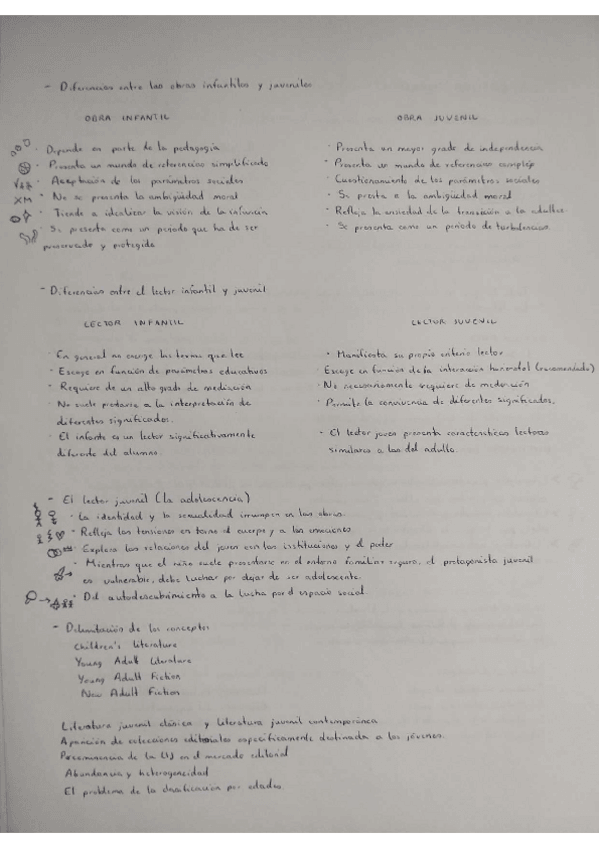 - Diferencias entre las obras infantiles y juveniles
OBRA INFANTIL
· Depende en parte de la pedagogía
· Presenta un mundo de referencias simplificado
· Aceptación de los parámetros sociales
· No se presenta la ambigüedad moral
· Tiende a idealizar la visión de la infancia
· Se presenta como un periodo que ha de ser
preservado y protegido
OBRA JUVENIL
· Presenta un mayor grado de independencia
· Presenta un mundo de referencias complejo
· Cuestionamiento de los parámetros sociales
· Se presta a la ambigüedad moral
· Refleja la ansiedad de la transición a la adultez.
· Se presenta como un periodo de turbulencias.
- Diferencias entre el lector infantil y juvenil
LECTOR INFANTIL
· En general no escoge los temas que lee
· Escoge en función de parámetros educativos
· Requiere de un alto grado de mediación
· No suele prestarse a la interpretación de
diferentes significados.
· El infante es un lector significativamente
diferente del alumno.
LECTOR JUVENIL
· Manifiesta su propio criterio lector
Escoge en función de la interacción horizontal (recomendado)
· No necesariamente requiere de mediación
· Permite la convivencia de diferentes significados.
· El lector joven presenta características lectoras
similares a las del adulto.
- El lector juvenil (la adolescencia)
· La identidad y la sexualidad irrumpen en las obras.
· Refleja las tensiones en torno al cuerpo y a las emociones.
· Explora las relaciones del joven con las instituciones y el poder
· Mientras que el niño suele presentarse en el entorno familiar seguro, el protagonista juvenil
es vulnerable, debe luchar por dejar de ser adolescente.
· Del autodescubrimiento a la lucha por el espacio social.
- Delimitación de los conceptos
Children's Literature
Young Adult Literature
Young Adult Fiction
New Adult Fiction
Literatura juvenil clásica y literatura juvenil contemporánea
Aparición de colecciones editoriales específicamente destinada a los jóvenes.
Preeminencia de la LIJ en el mercado editorial
Abundancia y heterogeneidad
El problema de la clasificación por edades.